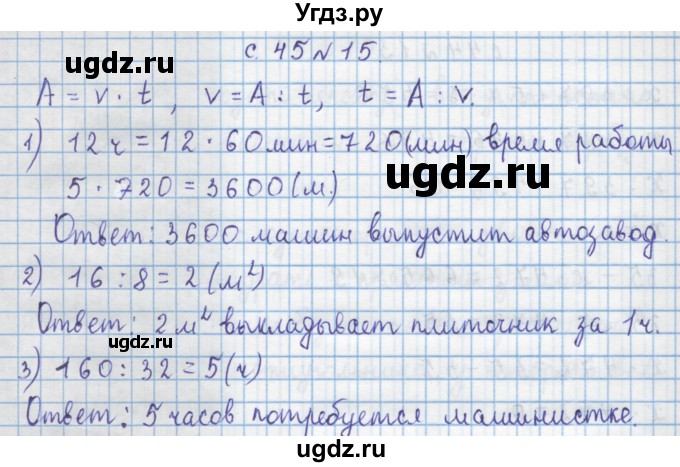 с. 45 № 15.
ugdz.ru
A = v · t, v = A : t, t = A : v.
1) 12 ч = 12 · 60 мин = 720 (мин) время работы
5 · 720 = 3600 (м.)
ugdz.ru
Ответ: 3600 машин выпустит автозавод.
2) 16 : 8 = 2 (м²)
Ответ: 2 м² выкладывает плиточник за 1 ч.
ugdz.ru
3) 160 : 32 = 5 (ч)
Ответ: 5 часов потребуется машинистке.
ugdz.ru
Угдз.ру